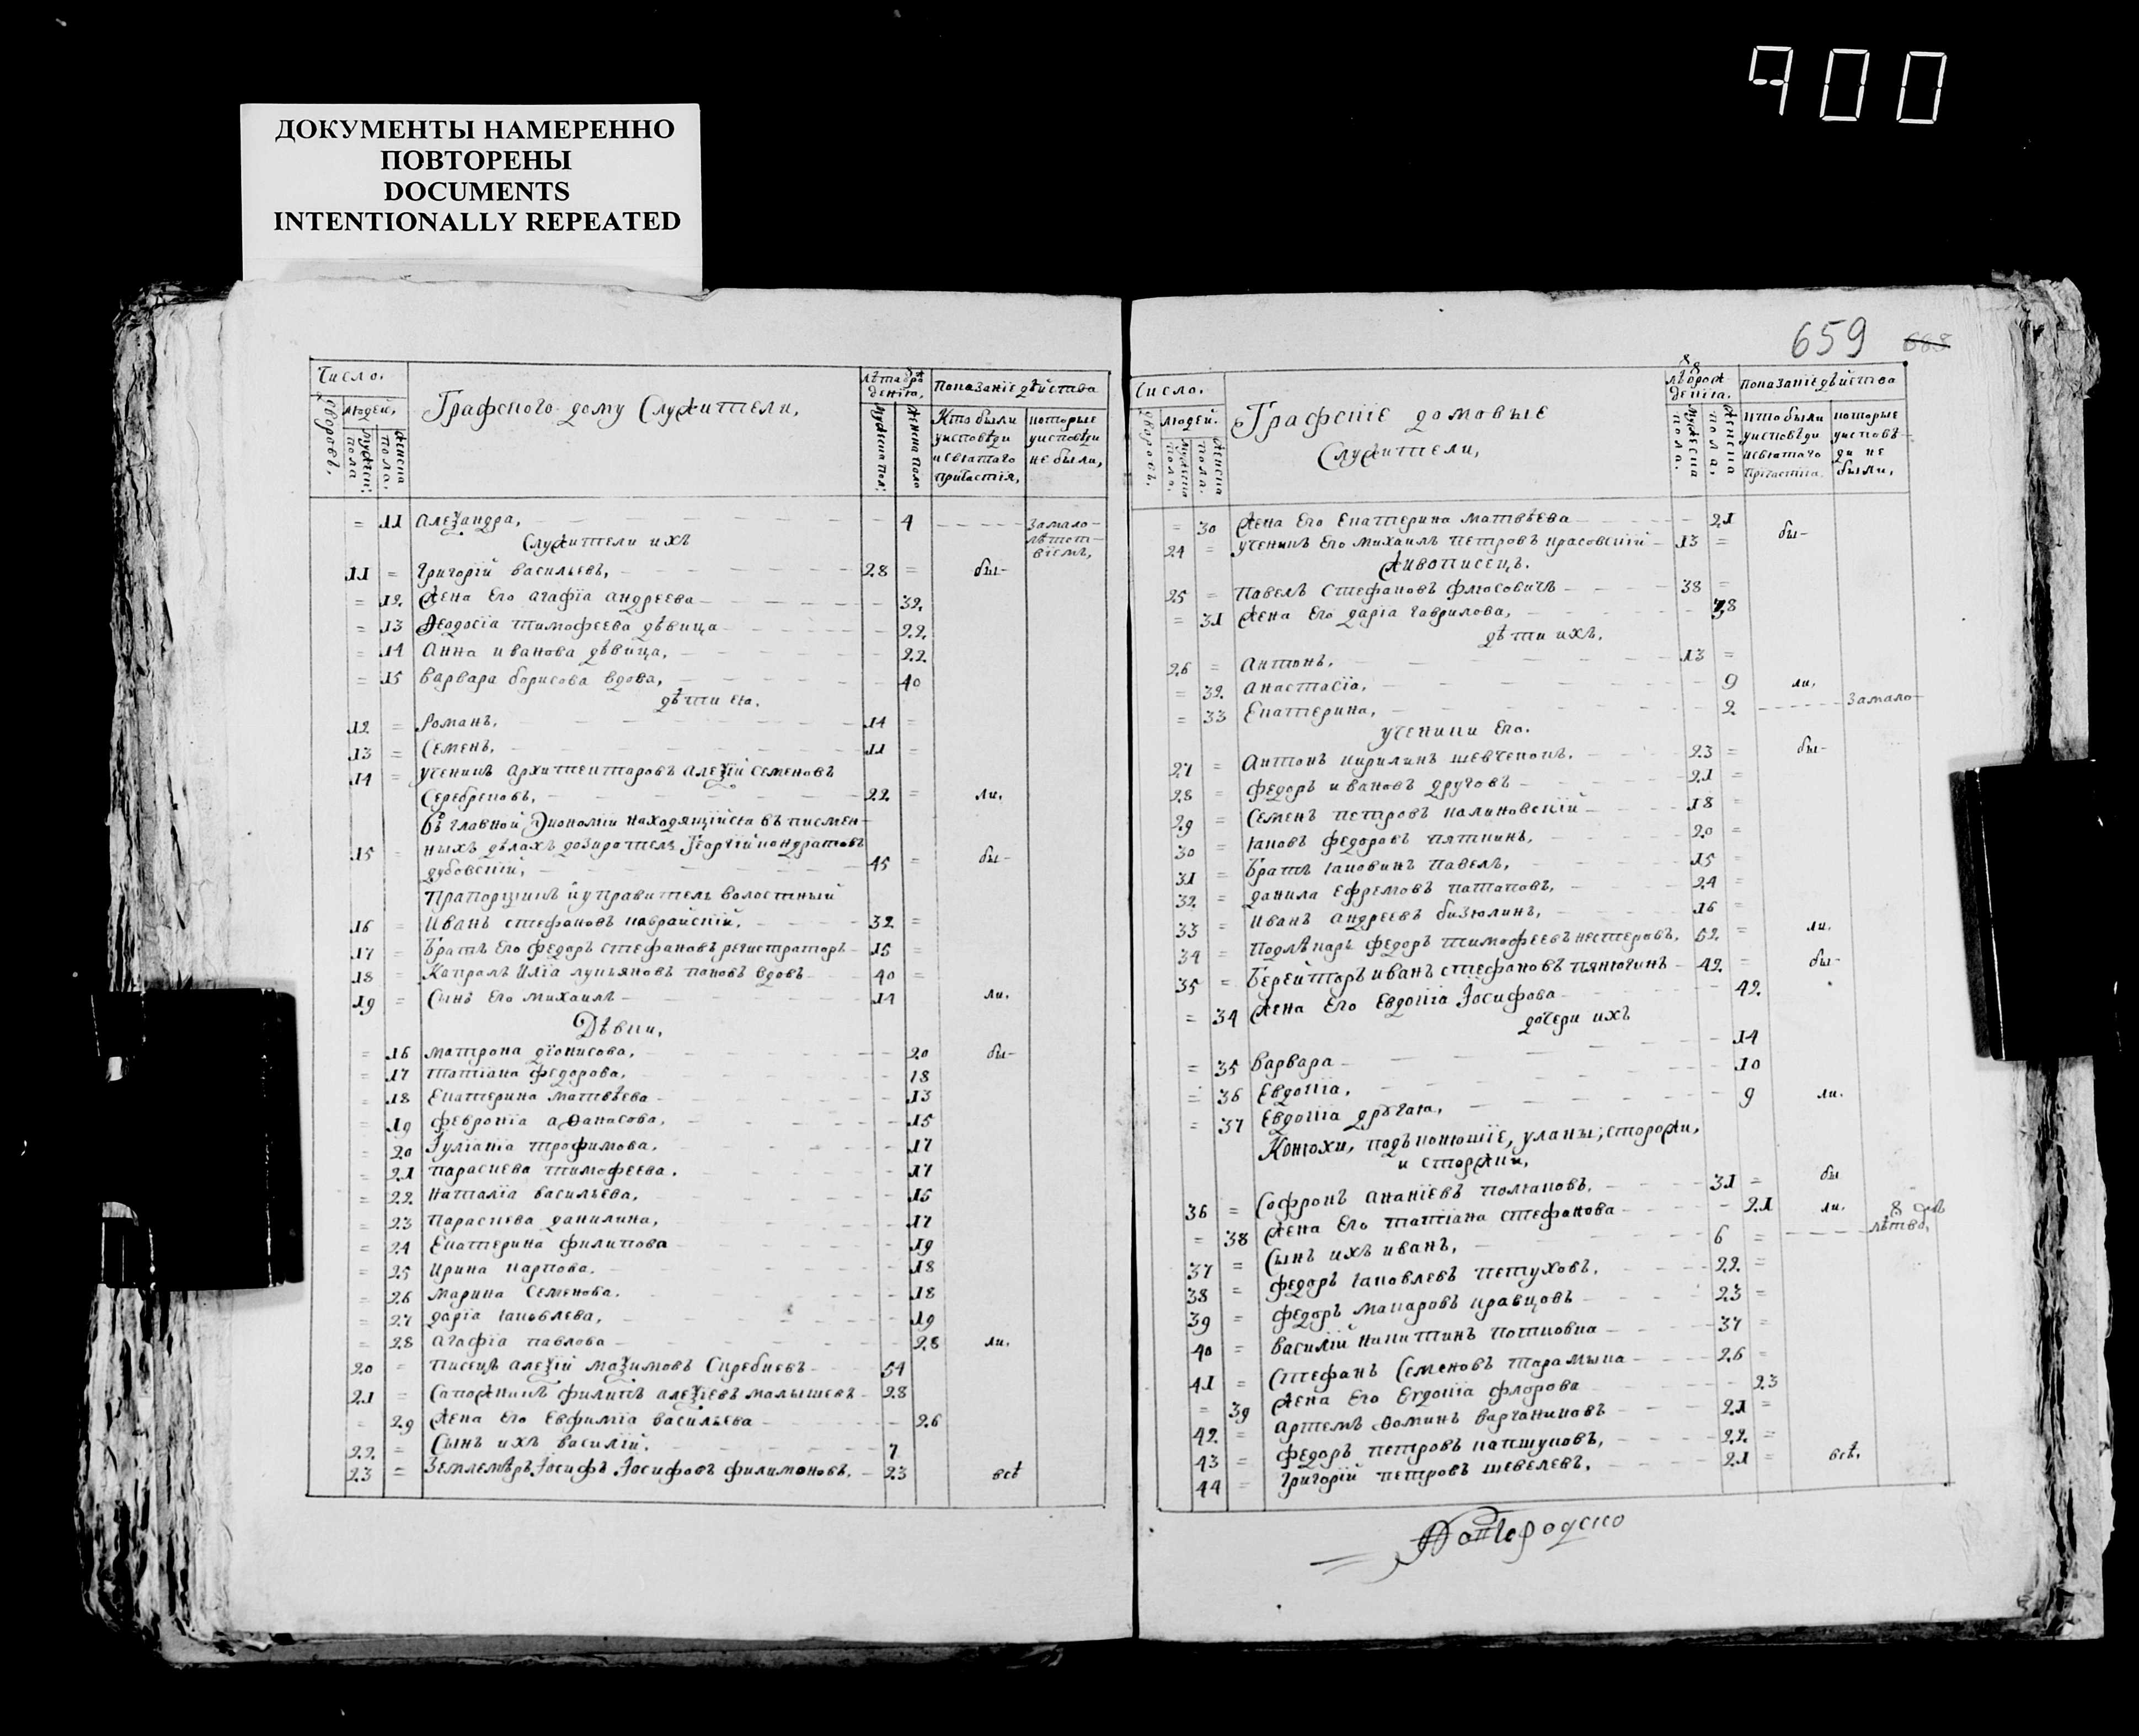 900
ДОКУМЕНТЫ НАМЕРЕННО
ПОВТОРЕНЫ
DOCUMENTS
INTENTIONALLY REPEATED
659
Число.
людей,
дворовъ.
мужеск:
пола
женска
пола.
Графского дому Служители,
мужеска пол:
женска поло
показанїе дѣйства
Кто были
уисповѣди
исвятаго
причастїя,
которые
уисповѣди
не были,
= 11 алеѯандра, 4 замало-
лѣтст-
вїемъ,
Служители ихъ
11 = григорїй васильевъ, 28 = бы-
= 12 жена его агафїа андреева 32
= 13 Ѳеодосїа тимофеева дѣвица 22
= 14 анна иванова дѣвица, 22
= 15 варвара борисова вдова, 40
дѣти ея.
12 = романъ, 14 =
13 = Семенъ, 11 =
14 = ученикъ архитекторовъ алеѯїй семеновъ
Серебрековъ, 22 = ли,
въ главной Экономїи находящїйся въ писмен-
15 = ныхъ дѣлахъ Георгїй кондратовъ
дубовскїй, 45 = бы-
Прапорщикъ и управитель волостный
16 = Иванъ стефановъ навраискїй, 32 =
17 = братъ его федоръ стефановъ, регистраторъ 15 =
18 = Капралъ Илїа лукьяновъ поповъ вдовъ 40 =
19 = Сынъ его михаилъ 14 ли,
Дѣвки,
= 16 матрона дїонисова, 20 бы-
= 17 татїана федорова, 18
= 18 Екатерина матвѣева 13
= 19 февронїа аѳанасова, 15
= 20 Іулїанїа трофимова, 17
= 21 параскева тимофеева, 17
= 22 наталїа васильева, 15
= 23 параскева данилина, 17
= 24 Екатерина филипова 19
= 25 Ирина карпова, 18
= 26 марина семенова, 18
= 27 дарїа іаковлева, 19
= 28 агафїа павлова 28 ли,
20 = писецъ алеѯїй маѯимовъ Скребневъ 54
21 = Сапожникъ филипъ алеѯїевъ малышевъ 28
= 29 жена его Евфимїа васильева 26
22 = Сынъ ихъ василїй, 7
23 = Землемѣръ Іосифъ Іосифовъ филимоновъ, 23 всѣ
Число.
людей.
дворовъ.
мужеска
пола.
женска
пола.
Графскїе домовые
Служители,
мужеска
пола.
женска
пола,
показанїе дѣйства
кто были
уисповѣди
исвятаго
причастїя.
которые
уисповѣ-
ди не
были,
= 30 жена его Екатерина матвѣева 21
24 = ученикъ его михаилъ петровъ красовскїй 13 = бы-
живописецъ.
25 = павелъ стефановъ флюсовичъ 38 =
= 31 жена его дарїа гаврилова, 28
дѣти ихъ.
26 = антонъ, 13 =
= 32 анастасїа, 9 ли,
= 33 Екатерина, 2 замало-
ученики его.
27 = антонъ кирилинъ шевченокъ, 23 = бы-
28 = федоръ ивановъ друговъ 21 =
29 = Семенъ петровъ калиновскїй 18 =
30 = іаковъ федоровъ пяткинъ, 20 =
31 = братъ іаковинъ павелъ, 15 =
32 = данила ефремовъ патаповъ, 24 =
33 = иванъ андреевъ бизюлинъ, 16 =
34 = подлѣкарь федоръ тимофеевъ нестеровъ, 52 = ли,
35 = берейторъ иванъ стефановъ пянюгинъ 42 = бы-
= 34 жена его Евдокїа Іосифова 42
дочери ихъ
= 35 варвара 14
= 36 Евдокїа, 10
= 37 Евдокїа другая, 9 ли,
Конюхи, подъконюшїе, уланы, сторожи,
и сторжки,
36 = Софронъ ананїевъ полкановъ, 31 = бы
= 38 жена его татїана стефанова 21 ли,
37 = Сынъ ихъ иванъ, 6 = лѣтво,
38 = федоръ іаковлевъ петуховъ, 22 =
39 = федоръ макаровъ кравцовъ 23 =
40 = василїй никитинъ потковка 37 =
41 = Стефанъ семеновъ тарамыка 26 =
= 39 жена его Евдокїа флорова 23
42 = артемъ ѳоминъ варганиновъ 21 =
43 = федоръ петровъ капшуковъ, 22 =
44 = григорїй петровъ шевелевъ, 21 = всѣ,